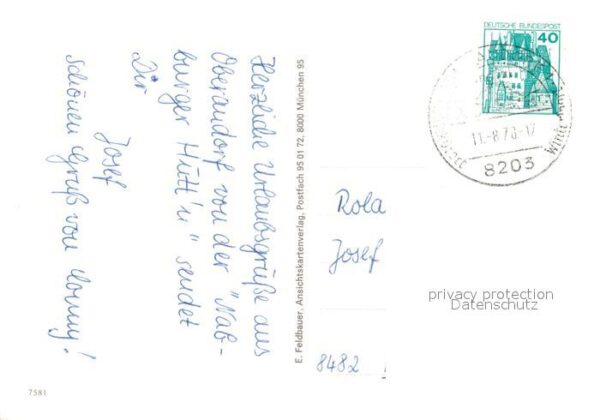 Herzliche Urlaubsgrüße aus
Oberaudorf von der "Nab-
burger Hütt'n" sendet
Dir
Josef
schönen Gruß von Conny!
E. Feldbauer, Ansichtskartenverlag, Postfach 95 01 72, 8000 München 95
DEUTSCHE BUNDESPOST
40
8203
Rola
Josef
8482
privacy protection
Datenschutz
7581